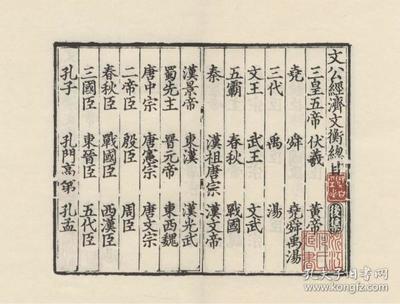 文公經濟文衡總目 後集
三皇五帝 伏羲 黃帝
堯 舜 堯舜禹湯
三代 禹 湯
文王 武王 文武
五霸 春秋 戰國
秦 漢祖唐宗 漢文帝
漢景帝 東漢 漢光武
蜀先主 晉元帝 東西魏
唐中宗 唐憲宗 唐文宗
二帝臣 殷臣 周臣
春秋臣 戰國臣 西漢臣
三國臣 東晉臣 五代臣
孔子 孔門高第 孔孟